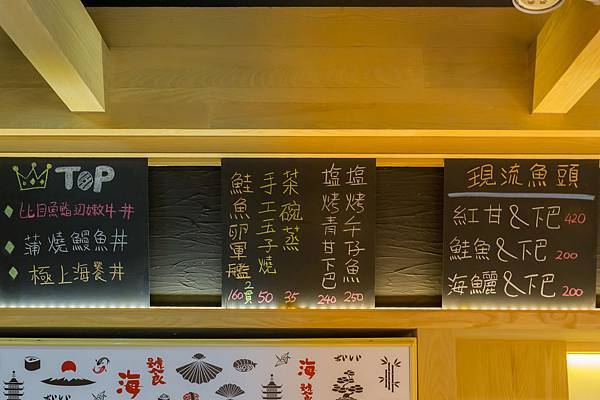 TOP
比目魚鮨沏嫩牛丼
蒲燒鰻魚丼
極上海養丼
鹽烤午仔魚 250
鹽烤青甘下巴 240
茶碗蒸 35
手工玉子燒 50
鮭魚卵軍艦 2貫 160
現流魚頭
紅甘&下巴 420
鮭魚&下巴 200
海鱺&下巴 200
海